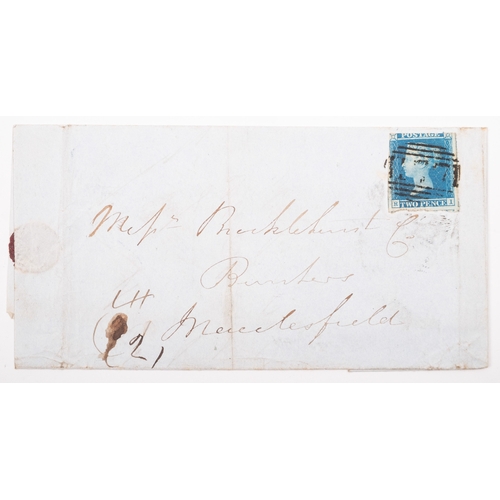 POSTAGE
TWO PENCE
Messrs Brocklehurst & Co
Bankers
Macclesfield
(2)